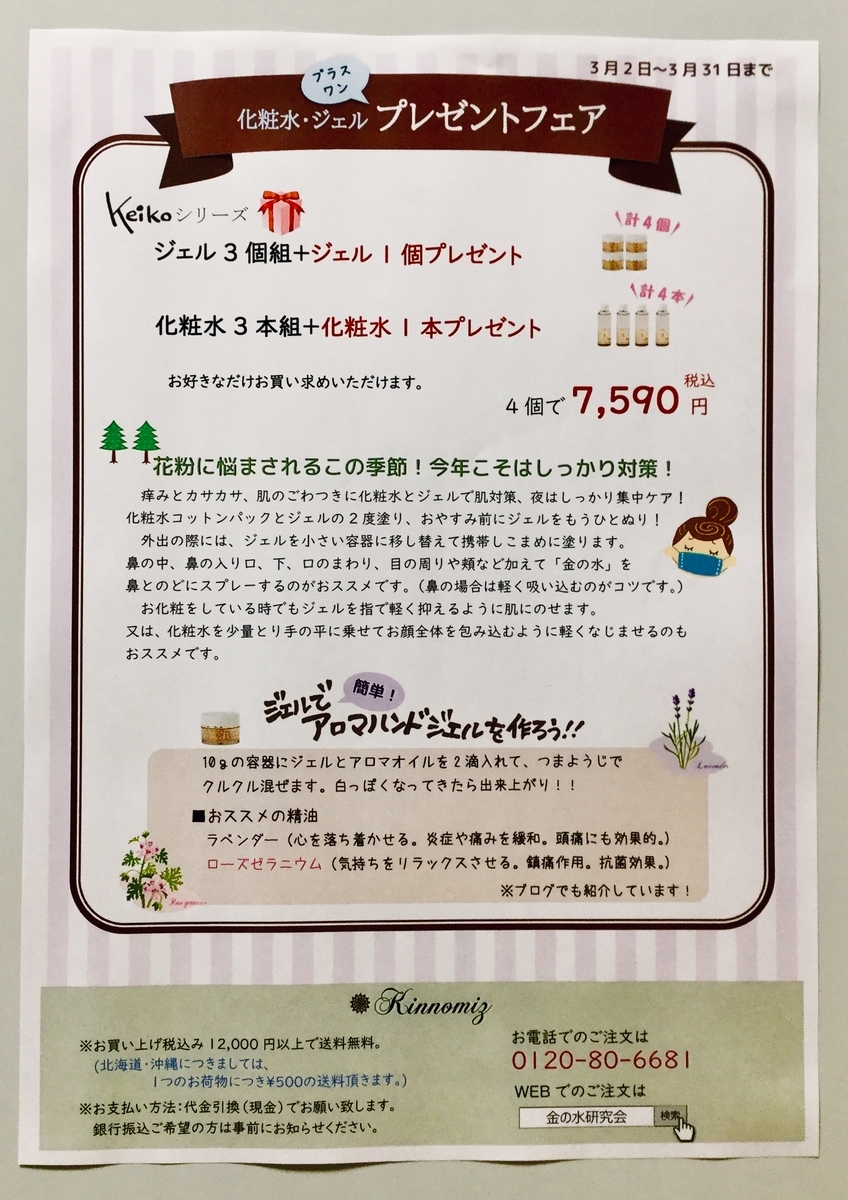 3月2日～3月31日まで
プラス
ワン
化粧水・ジェル プレゼントフェア
Keikoシリーズ
計4個
ジェル3個組+ジェル1個プレゼント
計4本
化粧水3本組+化粧水1本プレゼント
お好きなだけお買い求めいただけます。
4個で 7,590円 税込
花粉に悩まされるこの季節！今年こそはしっかり対策！
痒みとカサカサ、肌のごわつきに化粧水とジェルで肌対策、夜はしっかり集中ケア！
化粧水コットンパックとジェルの2度塗り、おやすみ前にジェルをもうひとぬり！
外出の際には、ジェルを小さい容器に移し替えて携帯しこまめに塗ります。
鼻の中、鼻の入り口、下、口のまわり、目の周りや頬など加えて「金の水」を
鼻とのどにスプレーするのがおススメです。（鼻の場合は軽く吸い込むのがコツです。）
お化粧をしている時でもジェルを指で軽く抑えるように肌にのせます。
又は、化粧水を少量とり手の平に乗せてお顔全体を包み込むように軽くなじませるのも
おススメです。
簡単！
ジェルで
アロマハンドジェルを作ろう!!
10gの容器にジェルとアロマオイルを2滴入れて、つまようじで
クルクル混ぜます。白っぽくなってきたら出来上がり！！
Lavender
■おススメの精油
ラベンダー（心を落ち着かせる。炎症や痛みを緩和。頭痛にも効果的。）
ローズゼラニウム（気持ちをリラックスさせる。鎮痛作用。抗菌効果。）
※ブログでも紹介しています！
Kinnomiz
※お買い上げ税込み12,000円以上で送料無料。
（北海道・沖縄につきましては、
1つのお荷物につき¥500の送料頂きます。）
※お支払い方法：代金引換（現金）でお願い致します。
銀行振込ご希望の方は事前にお知らせください。
お電話でのご注文は
0120-80-6681
WEBでのご注文は
金の水研究会 検索